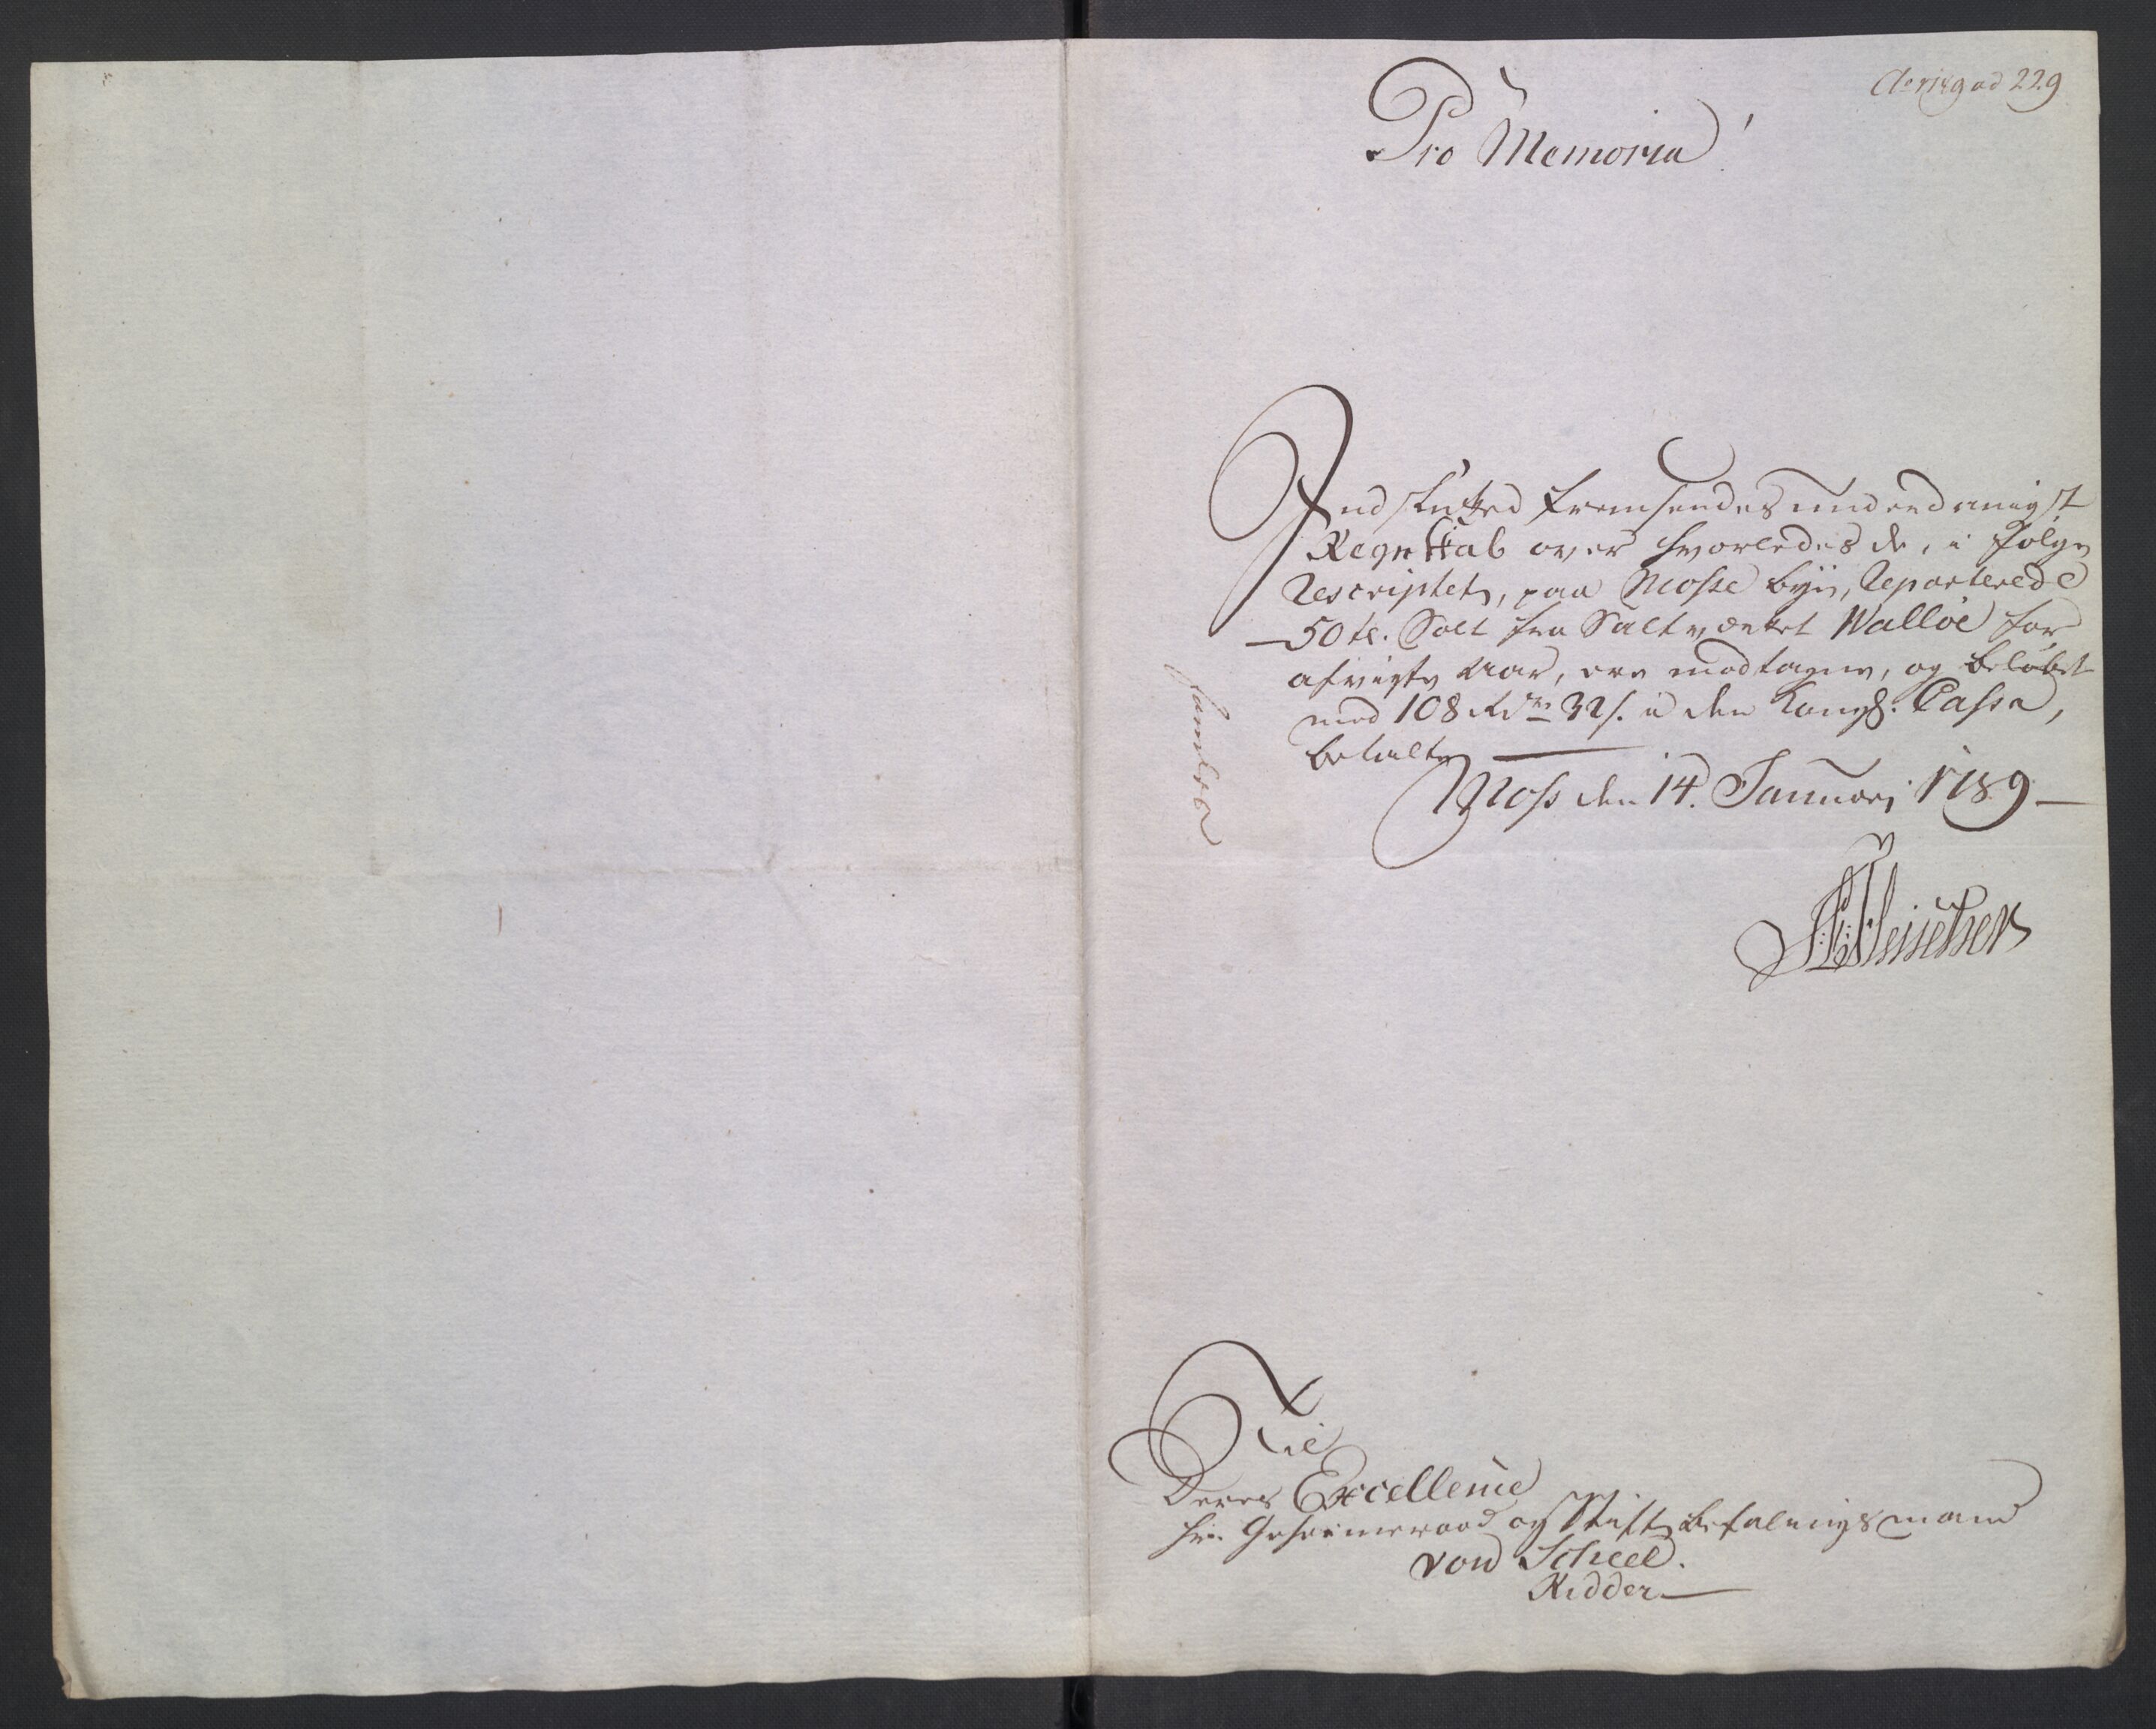 Ao 1789 ad 229
Pro Memoria!
Indslutted fremsendes underdanigst
Regnskab over hvorledes de, i følge
Rescriptet, paa Mosse bye, Reparterede
50 tr. Salt fra Saltværket Walløe for
afvigte Aar, ere modtagne, og beløbet
med 108 Rdr 32 s. i den Kongl. Cassa,
betalte
Moss den 14. Januari 1789
Til
Deres Excellence
Hr. Geheimeraad og Stiftsbefalingsmand
von Scheel.
Ridder